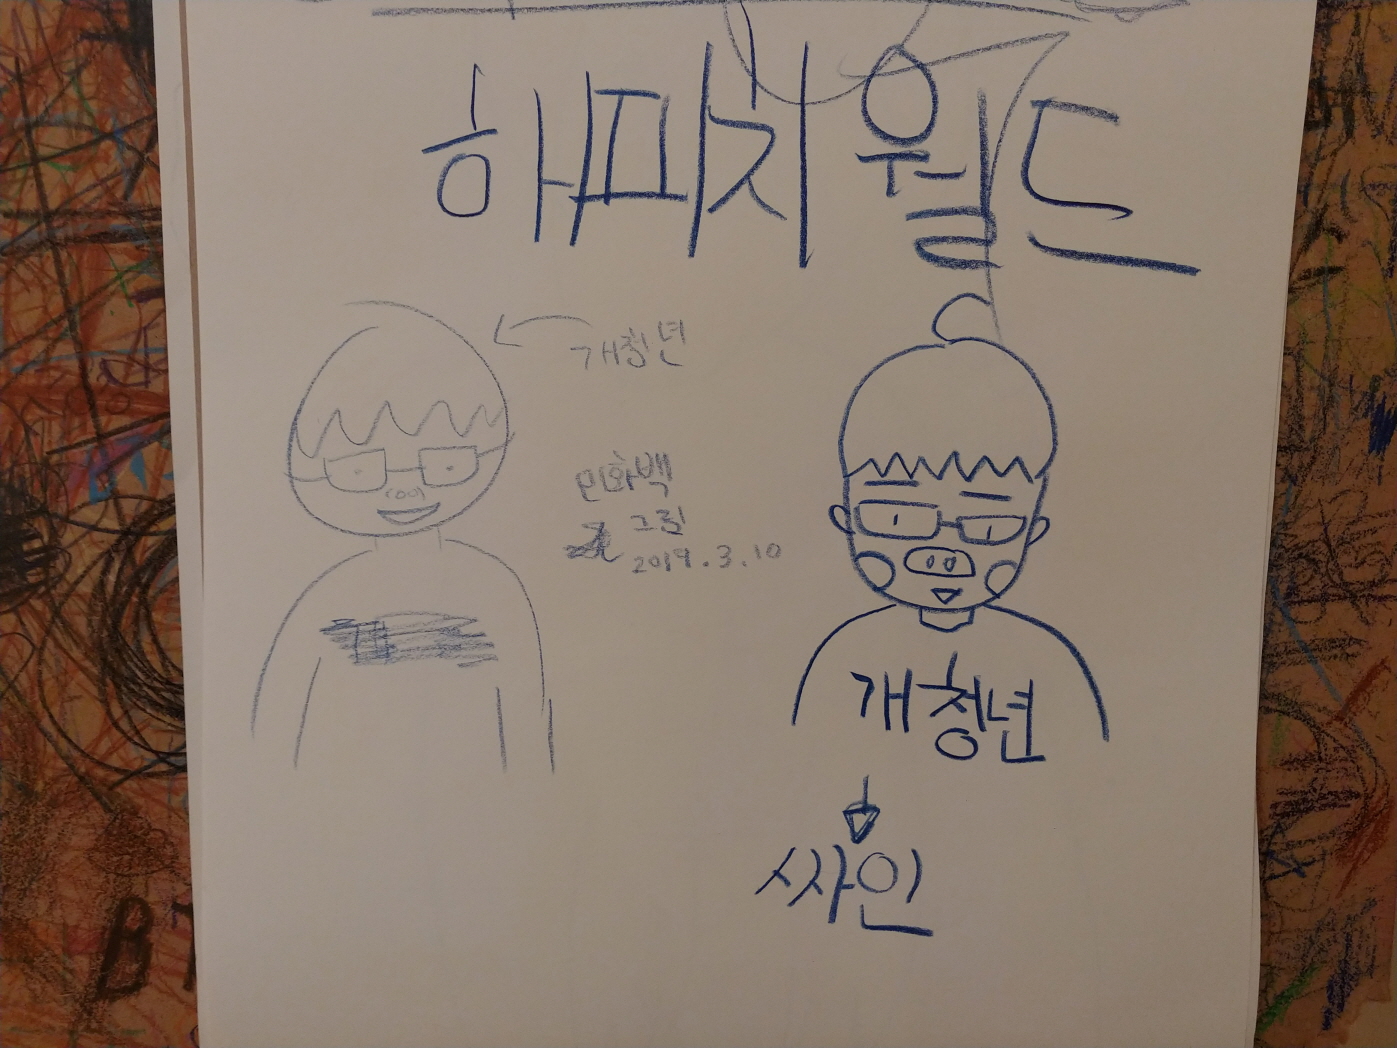 해피치월드
개청년
민화백
그림
2019.3.10
개청년
싸인